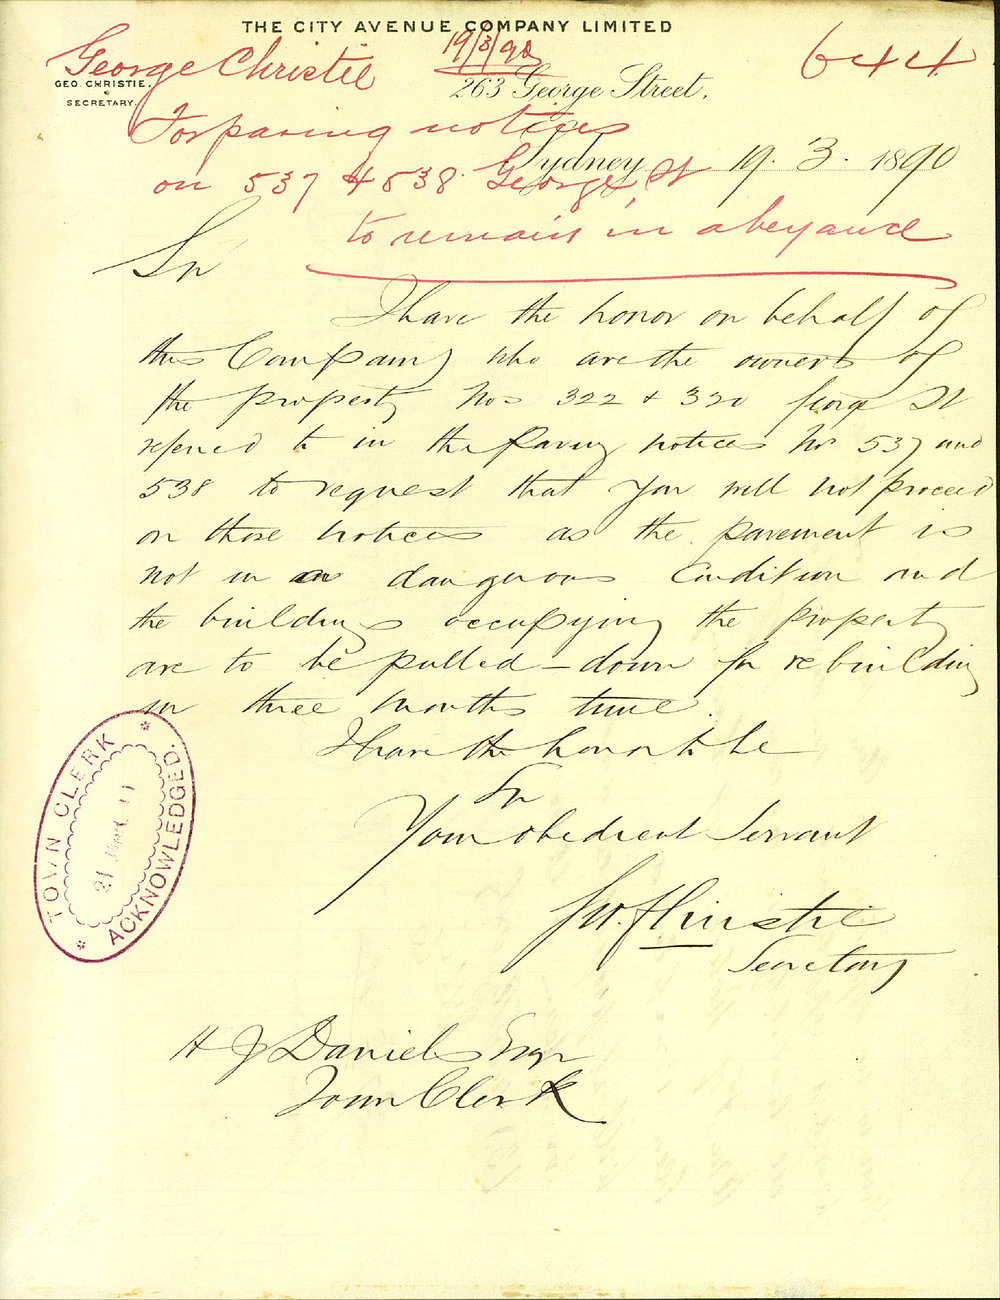 THE CITY AVENUE COMPANY LIMITED
19/3/90
644
George Christie
GEO. CHRISTIE.
SECRETARY.
263 George Street,
For paving notices
Sydney 19. 3. 1890
on 537 & 538 George St
to remain in abeyance
Sir
I have the honor on behalf of
this Company who are the owners of
the property Nos 322 & 320 George St
refered to in the Paving notices No 537 and
538 to request that you will not proceed
on those notices as the pavement is
not in a dangerous condition and
the buildings occupying the property
are to be pulled-down for rebuilding
in three months time.
I have the honor to be
Sir
Your obedient Servant
Christie
Secretary
TOWN CLERK
21
ACKNOWLEDGED.
H J Daniels Esqr
Town Clerk